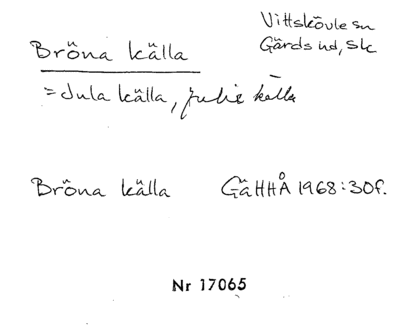 Vittskövle sn
Gärds hd, Sk
Bröna källa
= Jula källa, Julie källa
Bröna källa GäHHÅ 1968:30f.
Nr 17065